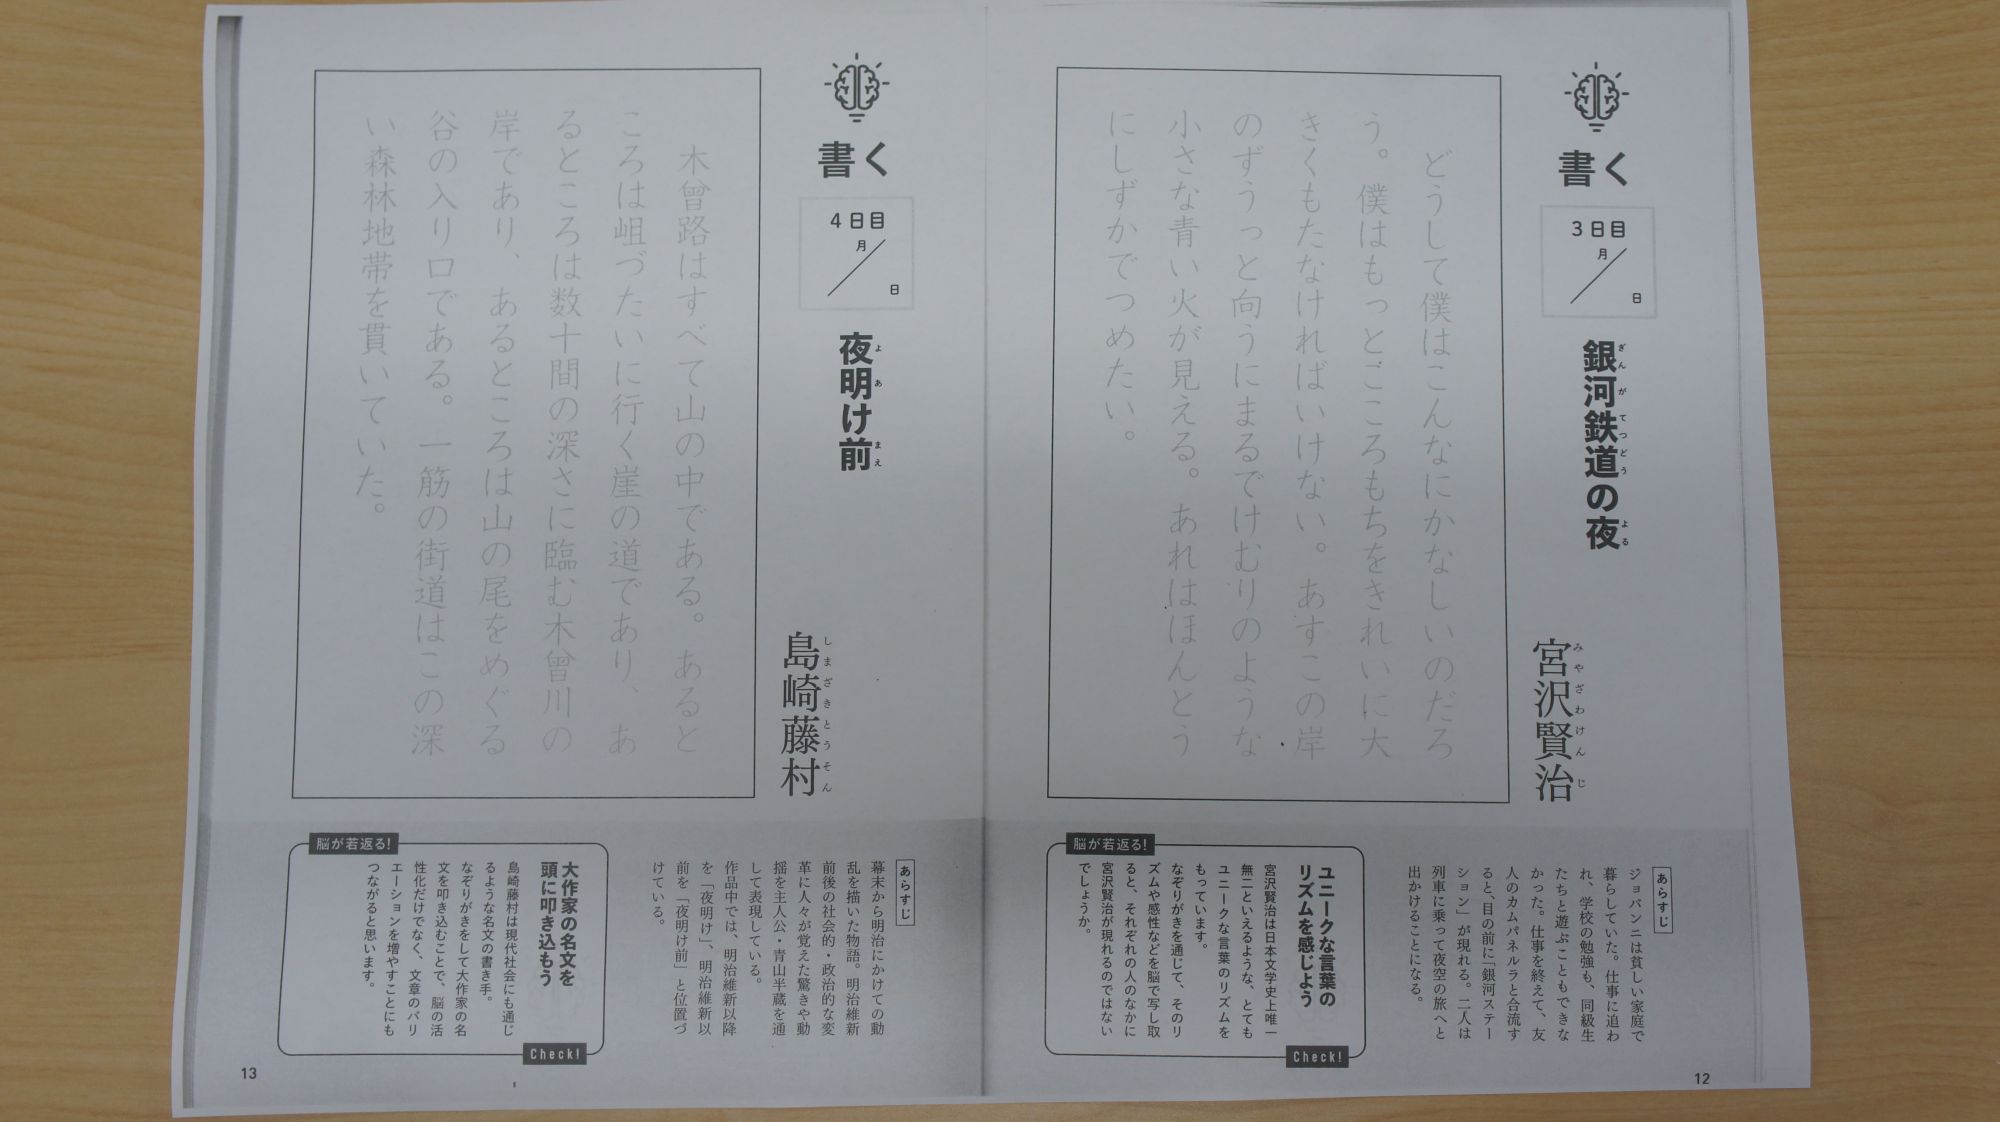 書く
3日目
月
日
銀河鉄道の夜
ぎんがてつどう よる
宮沢賢治
みやざわけんじ
どうして僕はこんなにかなしいのだろ
う。僕はもっとこころもちをきれいに大
きくもたなければいけない。あすこの岸
のずうっと向うにまるでけむりのような
小さな青い火が見える。あれはほんとう
にしずかでつめたい。
あらすじ
ジョバンニは貧しい家庭で
暮らしていた。仕事に追わ
れ、学校の勉強も、同級生
たちと遊ぶこともできな
かった。仕事を終えて、友
人のカムパネルラと合流す
ると、目の前に「銀河ステー
ション」が現れる。二人は
列車に乗って夜空の旅へと
出かけることになる。
脳が若返る!
ユニークな言葉の
リズムを感じよう
宮沢賢治は日本文学史上唯一
無二といえるような、とても
ユニークな言葉のリズムを
もっています。
なぞりがきを通じて、そのリ
ズムや感性などを脳で写し取
ると、それぞれの人のなかに
宮沢賢治が現れるのではない
でしょうか。
Check!
12
書く
4日目
月
日
夜明け前
よあ まえ
島崎藤村
しまざきとうそん
木曾路はすべて山の中である。あると
ころは岨づたいに行く崖の道であり、あ
るところは数十間の深さに臨む木曾川の
岸であり、あるところは山の尾をめぐる
谷の入り口である。一筋の街道はこの深
い森林地帯を貫いていた。
あらすじ
幕末から明治にかけての動
乱を描いた物語。明治維新
前後の社会的・政治的な変
革に人々が覚えた驚きや動
揺を主人公・青山半蔵を通
して表現している。
作品中では、明治維新以降
を「夜明け」、明治維新以
前を「夜明け前」と位置づ
けている。
脳が若返る!
大作家の名文を
頭に叩き込もう
島崎藤村は現代社会にも通じ
るような名文の書き手。
なぞりがきをして大作家の名
文を叩き込むことで、脳の活
性化だけでなく、文章のバリ
エーションを増やすことにも
つながると思います。
Check!
13